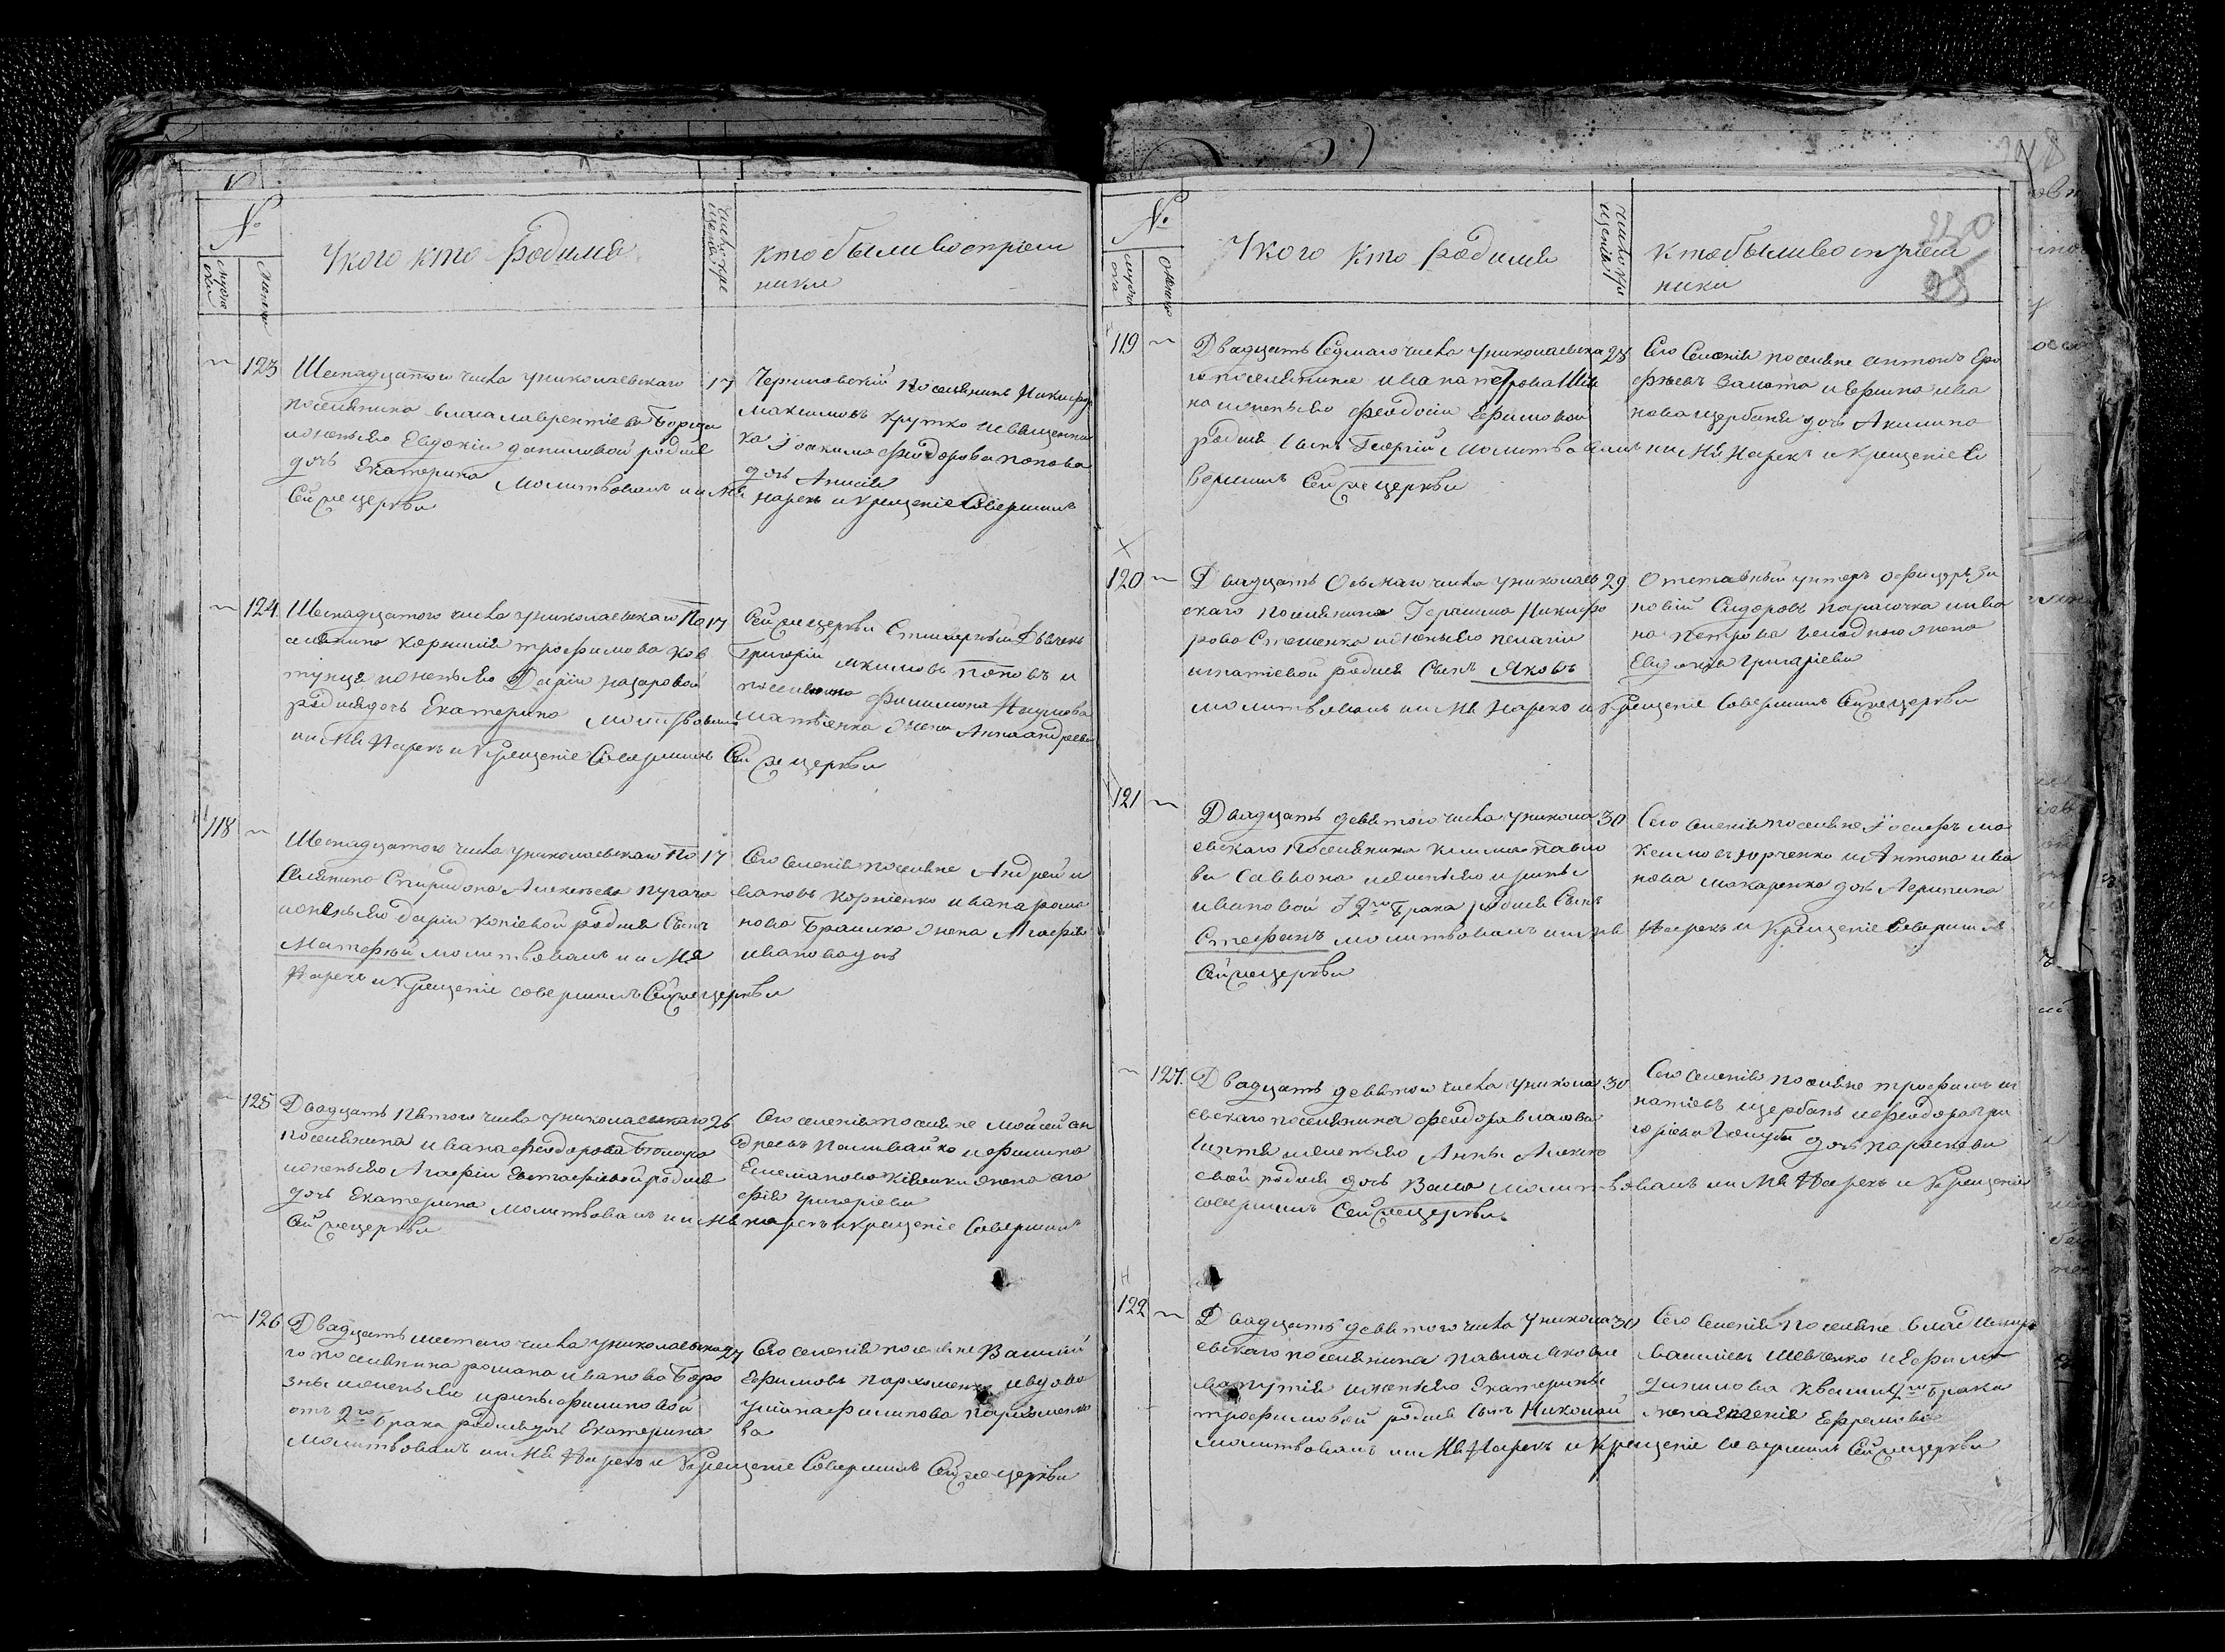 №
мужска
женска
У кого кто родился
число кре
щенія
кто были воспріем
ники
123
Шеснадцатого числа у николаевскаго
поселянина власа лаврентіева
и жены его Евдокіи даниловой родил
дочь Екатерина молитвовалъ и имя
Сей же церкви
17
поселянинъ Никифор
максимовъ крутко и священни
ка Іоакима феодорова попова
дочь Анисія
нарекъ и крещеніе Совершилъ
124
Шеснадцатого числа у николаевскаго По
селянина корнилія трофимова ков
тунца и жены его Даріи назаровой
родися дочь Екатерина молитвовалъ
и имя Нарекъ и Крещеніе Совершилъ Сей же церкви
17
Сей же церкви Стихарный Дьячекъ
Григорій якимовъ поповъ и
поселянина филимона Наумова
матвіенка жена Анна андреева
118
Шеснадцатого числа у николаевскаго По
Селянина Спиридона Алексеева пугача
и жены его даріи родися Сынъ
Матфѣй молитвовалъ и имя
Нарекъ и Крещеніе совершилъ Сей же церкви
17
Сего селенія поселяне Андрей и
вановъ корніенко и ивана рома
нова жена Агафія
иванова дочь
125
Двадцать пятого числа у николаевскаго
поселянина ивана феодорова
и жены его Агафіи Евстафіевой родися
дочь Екатерина молитвовалъ и имя
Сей же церкви
26
Сего селенія поселяне Мойсей ан
дреевъ поливайко и филипа
жена ага
фія григоріева
нарекъ и крещеніе Совершилъ
126
Двадцать шестого числа у николаевска
го поселянина романа иванова Боро
зны и жены его ирины филиповой
отъ 2го брака родися дочь Екатерина
молитвовалъ и имя Нарекъ и Крещеніе Совершилъ Сей же церкви
27
Сего селенія поселяне Василій
Ефимовъ пархоменко и вдова
улиана филипова пархоменко
ва
№
мужс
ска
женска
У кого кто родился
число кре
щенія
кто были воспріем
ники
119
Двадцать Седмаго числа у николаевска
го поселянина ивана петрова
и жены его феодосіи Ефимовой
родися Сынъ Георгій молитвовалъ и имя Нарекъ и Крещеніе Со
вершилъ Сей же церкви
28
Сего Селенія поселяне антонъ Еро
феевъ и Ефима ива
нова щербаня дочь Акилина
120
Двадцать Осьмаго числа у николаев
скаго поселянина Герасима Никифо
рова Стешенка и жены его пелагіи
игнатіевой родися Сынъ Яковъ
молитвовалъ и имя Нареко и Крещеніе Совершилъ Сей же церкви
29
Отставный унтеръ офицеръ Зи
новій Сидоровъ парасочка и ива
на петрова жена
Евдокія григоріева
121
Двадцать девятого числа у никола
евскаго поселянина клима павло
ва Саввона и жены его ирины
ивановой 2го брака родися Сынъ
Стефанъ молитвовалъ и имя Нарекъ и Крещеніе Совершилъ
Сей же церкви
30
Сего Селенія поселяне Іосифъ ма
ксимовъ юрченко и Антона ива
нова макаренка дочь Агрипина
127
Двадцать девятого числа у никола
евскаго поселянина феодора власова
и жены его Анны Алексе
евой родися дочь Васса молитвовалъ и имя Нарекъ и Крещеніе
совершилъ Сей же церкви
30
Сего селенія поселяне трофимъ иг
натіевъ щербань и феодора гри
горіева голуба дочь параскева
122
Двадцать девятого числа у никола
евскаго поселянина павла яковле
ва путія и жены его Екатерины
трофимовой родися Сынъ Николай
молитвовалъ и имя Нарекъ и Крещеніе Совершилъ Сей же церкви
30
Сего Селенія поселяне владимиръ
васильевъ Шевченко и Ефима
данилова кваши 2го брака
жена Евгенія Ефремова